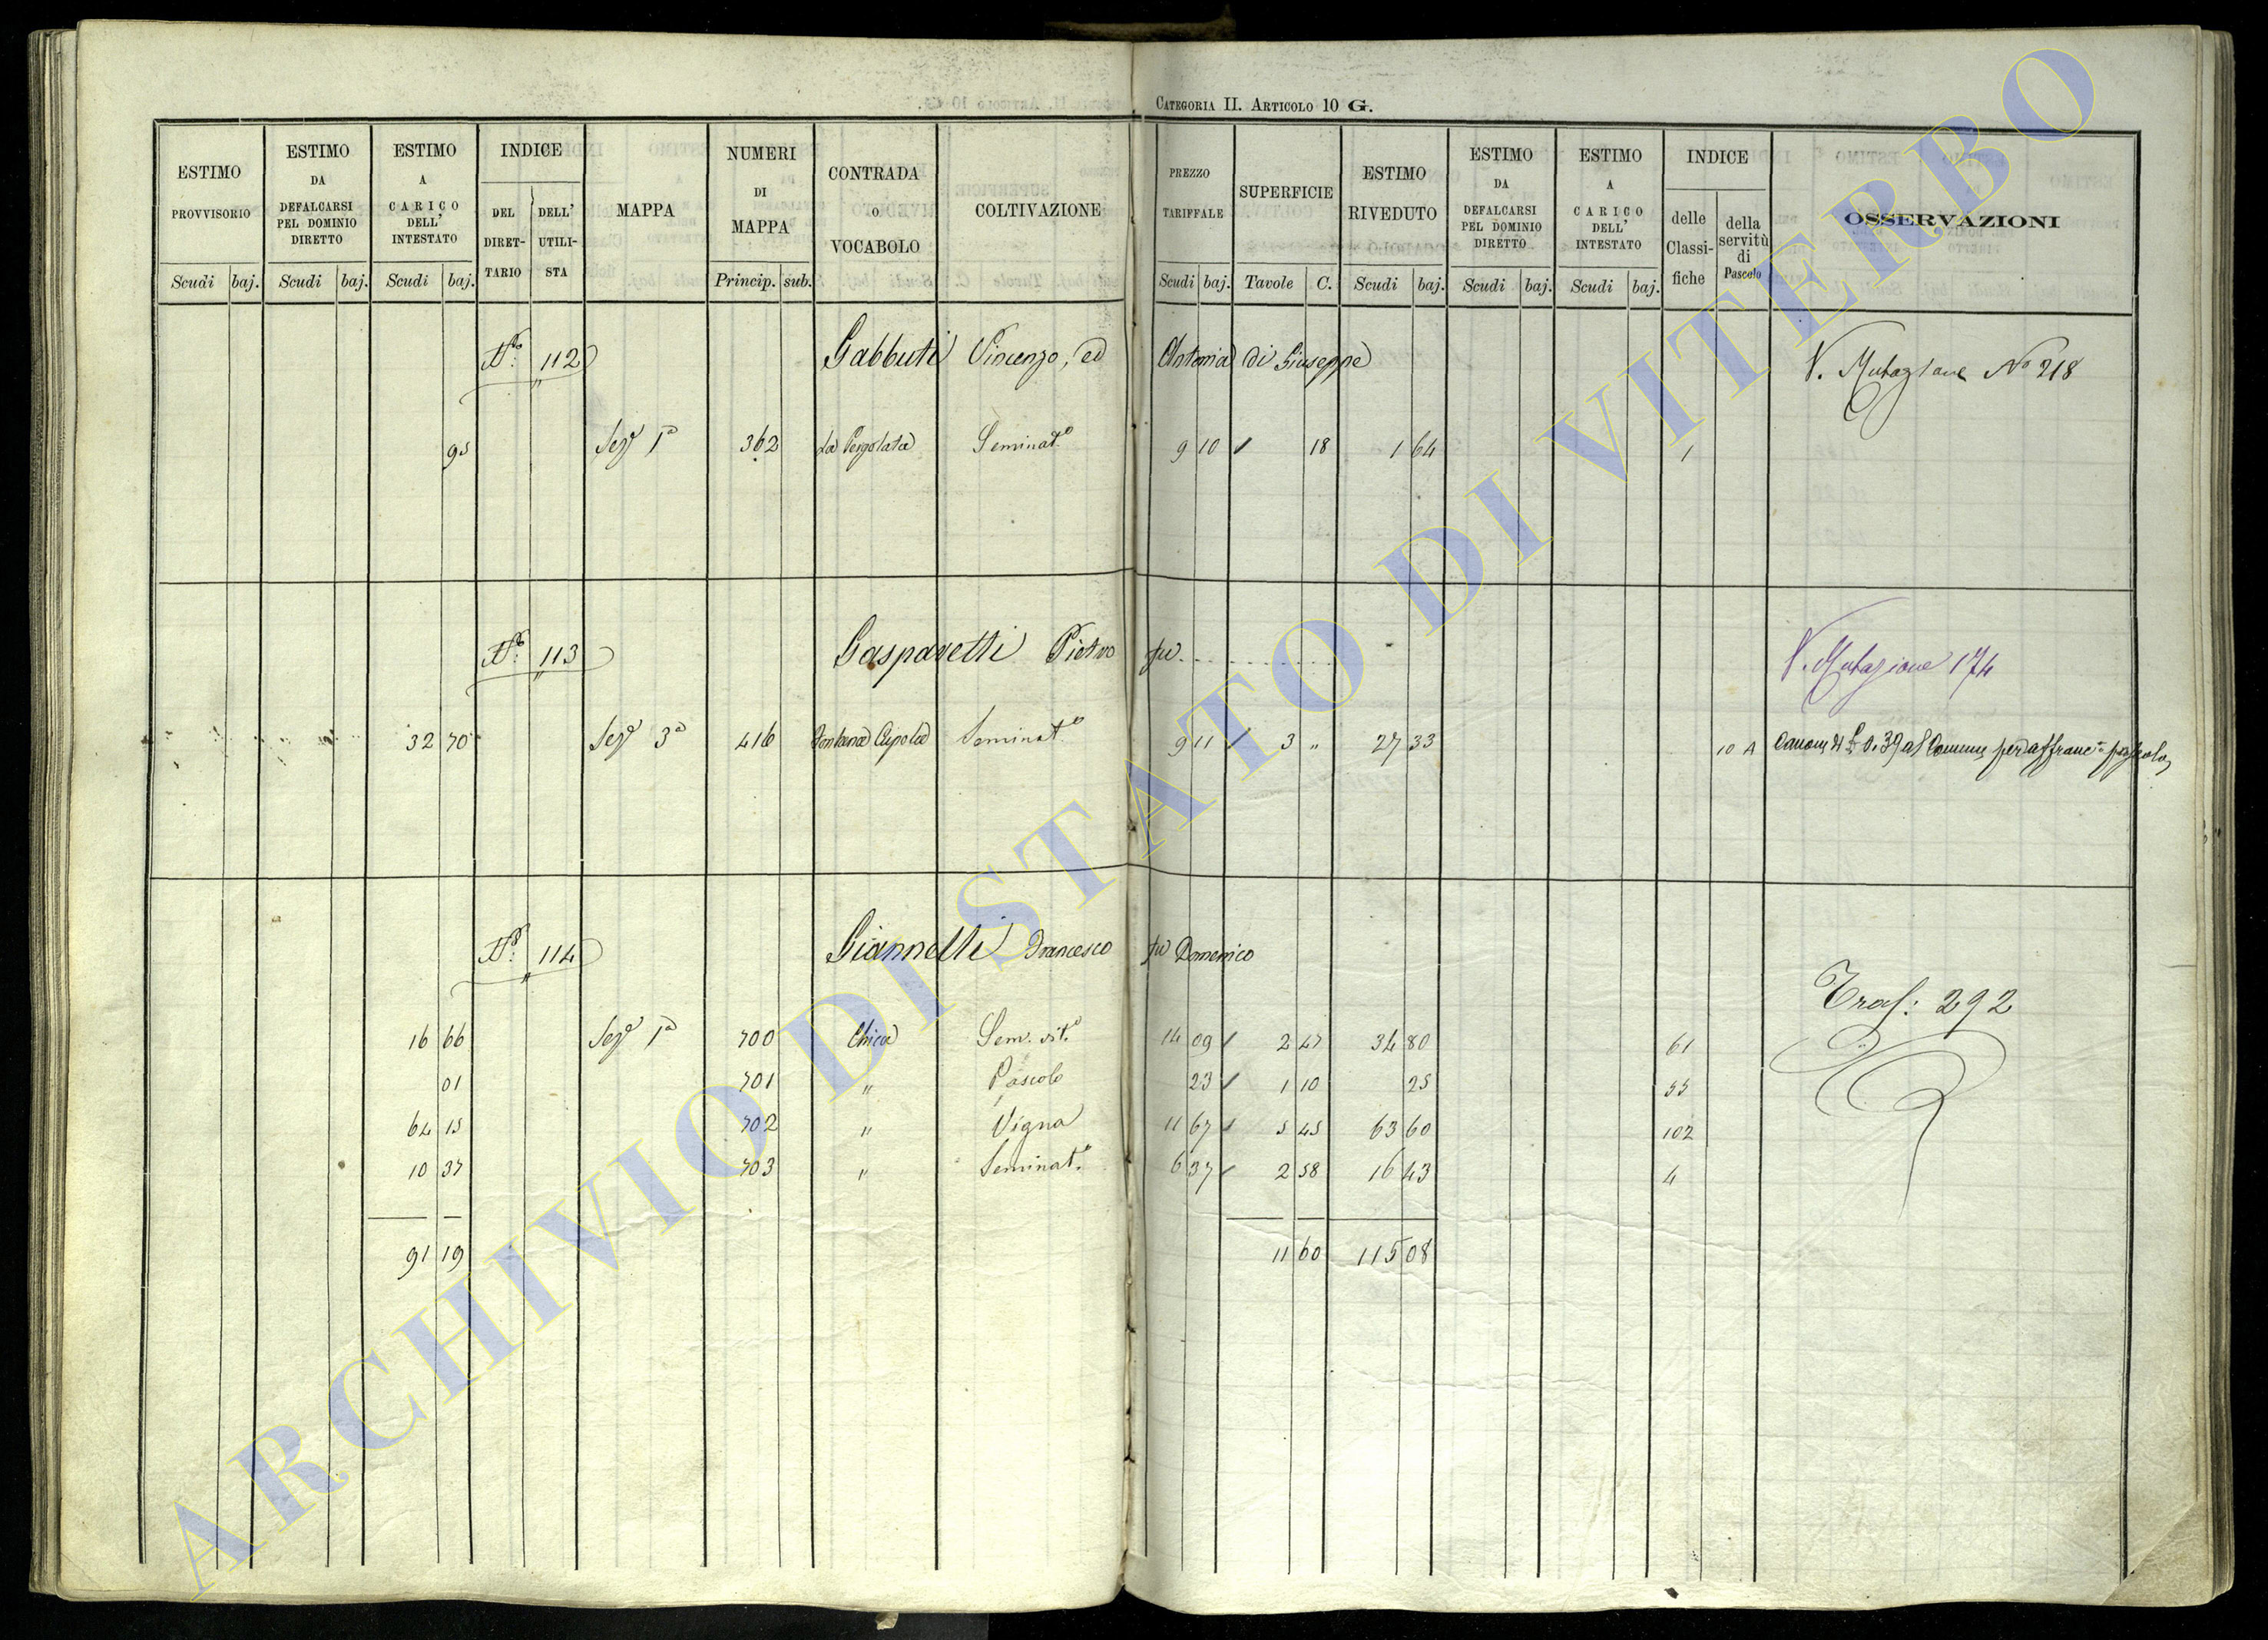 CATEGORIA II. ARTICOLO 10 G.
ESTIMO PROVVISORIO Scudi baj.
ESTIMO DA DEFALCARSI PEL DOMINIO DIRETTO Scudi baj.
ESTIMO A CARICO DELL' INTESTATO Scudi baj.
INDICE DEL DIRETTARIO DELL' UTILISTA
MAPPA
NUMERI DI MAPPA Princip. sub.
CONTRADA O VOCABOLO
COLTIVAZIONE
PREZZO TARIFFALE Scudi baj.
SUPERFICIE Tavole C.
ESTIMO RIVEDUTO Scudi baj.
ESTIMO DA DEFALCARSI PEL DOMINIO DIRETTO Scudi baj.
ESTIMO A CARICO DELL' INTESTATO Scudi baj.
INDICE delle Classifiche della servitù di Pascolo
OSSERVAZIONI
N.º 112 Gabbuti Vincenzo, ed Antonia di Giuseppe V. Mutazione Nº 218
95 Sezº 1ª 362 La Pergolata Seminatº 9 10 18 1 64 1
N.º 113 Gasparetti Pietro fu. . . . . . . . . . . V. Mutazione 174
32 70 Sezº 3ª 416 Fontana Cupola Seminatº 9 11 3 " 27 33 10 A Canone di £ 0.39 al Comune per affrancne pascolo
N.º 114 Giannelli Francesco fu Domenico
Tras: 292
16 66 Sezº 1ª 700 Chica Sem. vit.º 14 09 2 47 34 80 61
01 701 " Pascolo 23 1 10 25 55
64 15 702 " Vigna 11 67 5 45 63 60 102
10 37 703 " Seminat.º 6 37 2 58 16 43 4
91 19 11 60 115 08
ARCHIVIO DI STATO DI VITERBO